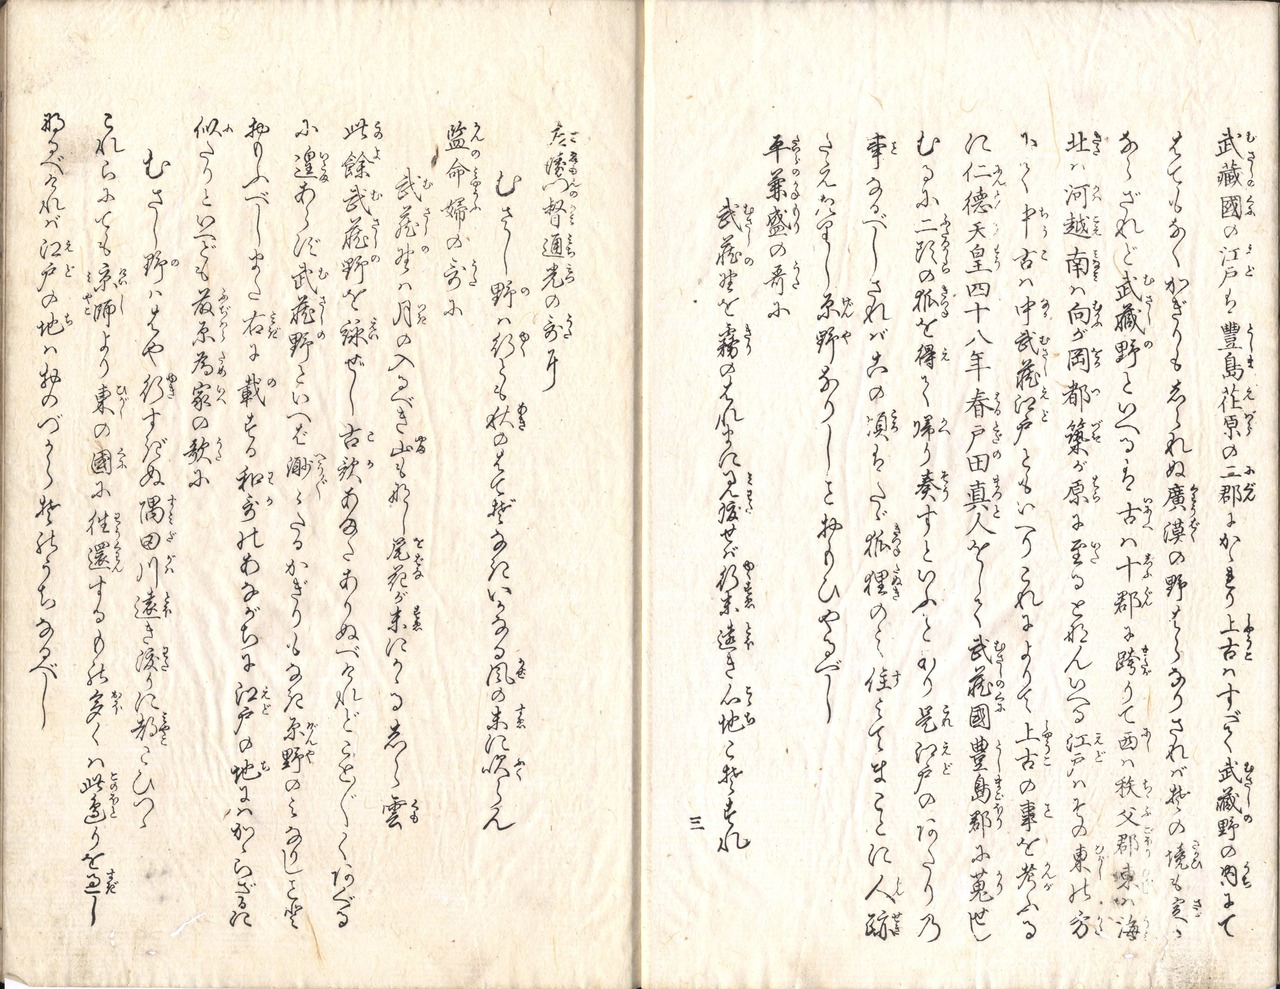 武藏國の江戸は豊島荏原の二郡にかゝり上古はすべて武藏野の内にて
はてもなくかぎりもしられぬ廣漠の野はらなりされば其の境も定か
ならざれど武藏野といへるは古は十郡に跨りて西は秩父郡東は海
北は河越南は向が岡都築が原に至るとなんいへる江戸はその東の方
にて中古は中武藏江戸ともいへりこれによりて上古の事を考ふる
に仁德天皇四十八年春戸田真人をして武藏國豊島郡に蒐せし
むるに二頭の狐を得て帰り奏すといふことあり是江戸のあたりの
事なるべしされば古の頃はたゞ狐狸のみ住みてまことに人跡
たえはてし原野なりしとおもひやるべし
平兼盛の哥に
武藏野を霧のはれまに見渡せば行末遠き心地こそすれ
三
左衛門督通光の哥に
むさし野は行くも秋のはてぞなきいかなる風の末に吹らん
監命婦の哥に
武藏野は月の入るべき山もなし尾花が末にかゝるしら雲
此餘武藏野を詠ぜし古歌あまたありぬべけれどこと〴〵くのべる
に遑あらず武藏野といへば渺々たるかぎりもなき原野のみなりしと
おもふべしまた右に載する和哥はあながちに江戸の地にはかゝらざるに
似たりといへども藤原為家の歌に
むさし野ははや行すぎぬ隅田川遠き渡りに都こひつゝ
これらにても京師より東の國に往還するもの多くは此辺りを過し
なるべければ江戸の地はおのづから其のうちなるべし